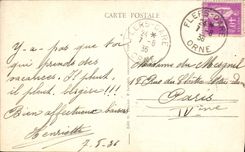 CARTE POSTALE
FLERS-
ORNE
7 -5
36
Y-a-pas que toi
qui prends des
vacances. Il pleut, il
pleut, bergère !!!
Bien affectueux baisers
Henriette
7.5.36
Madame du Mesnil
18 Rue du Cloître
Paris
IVème